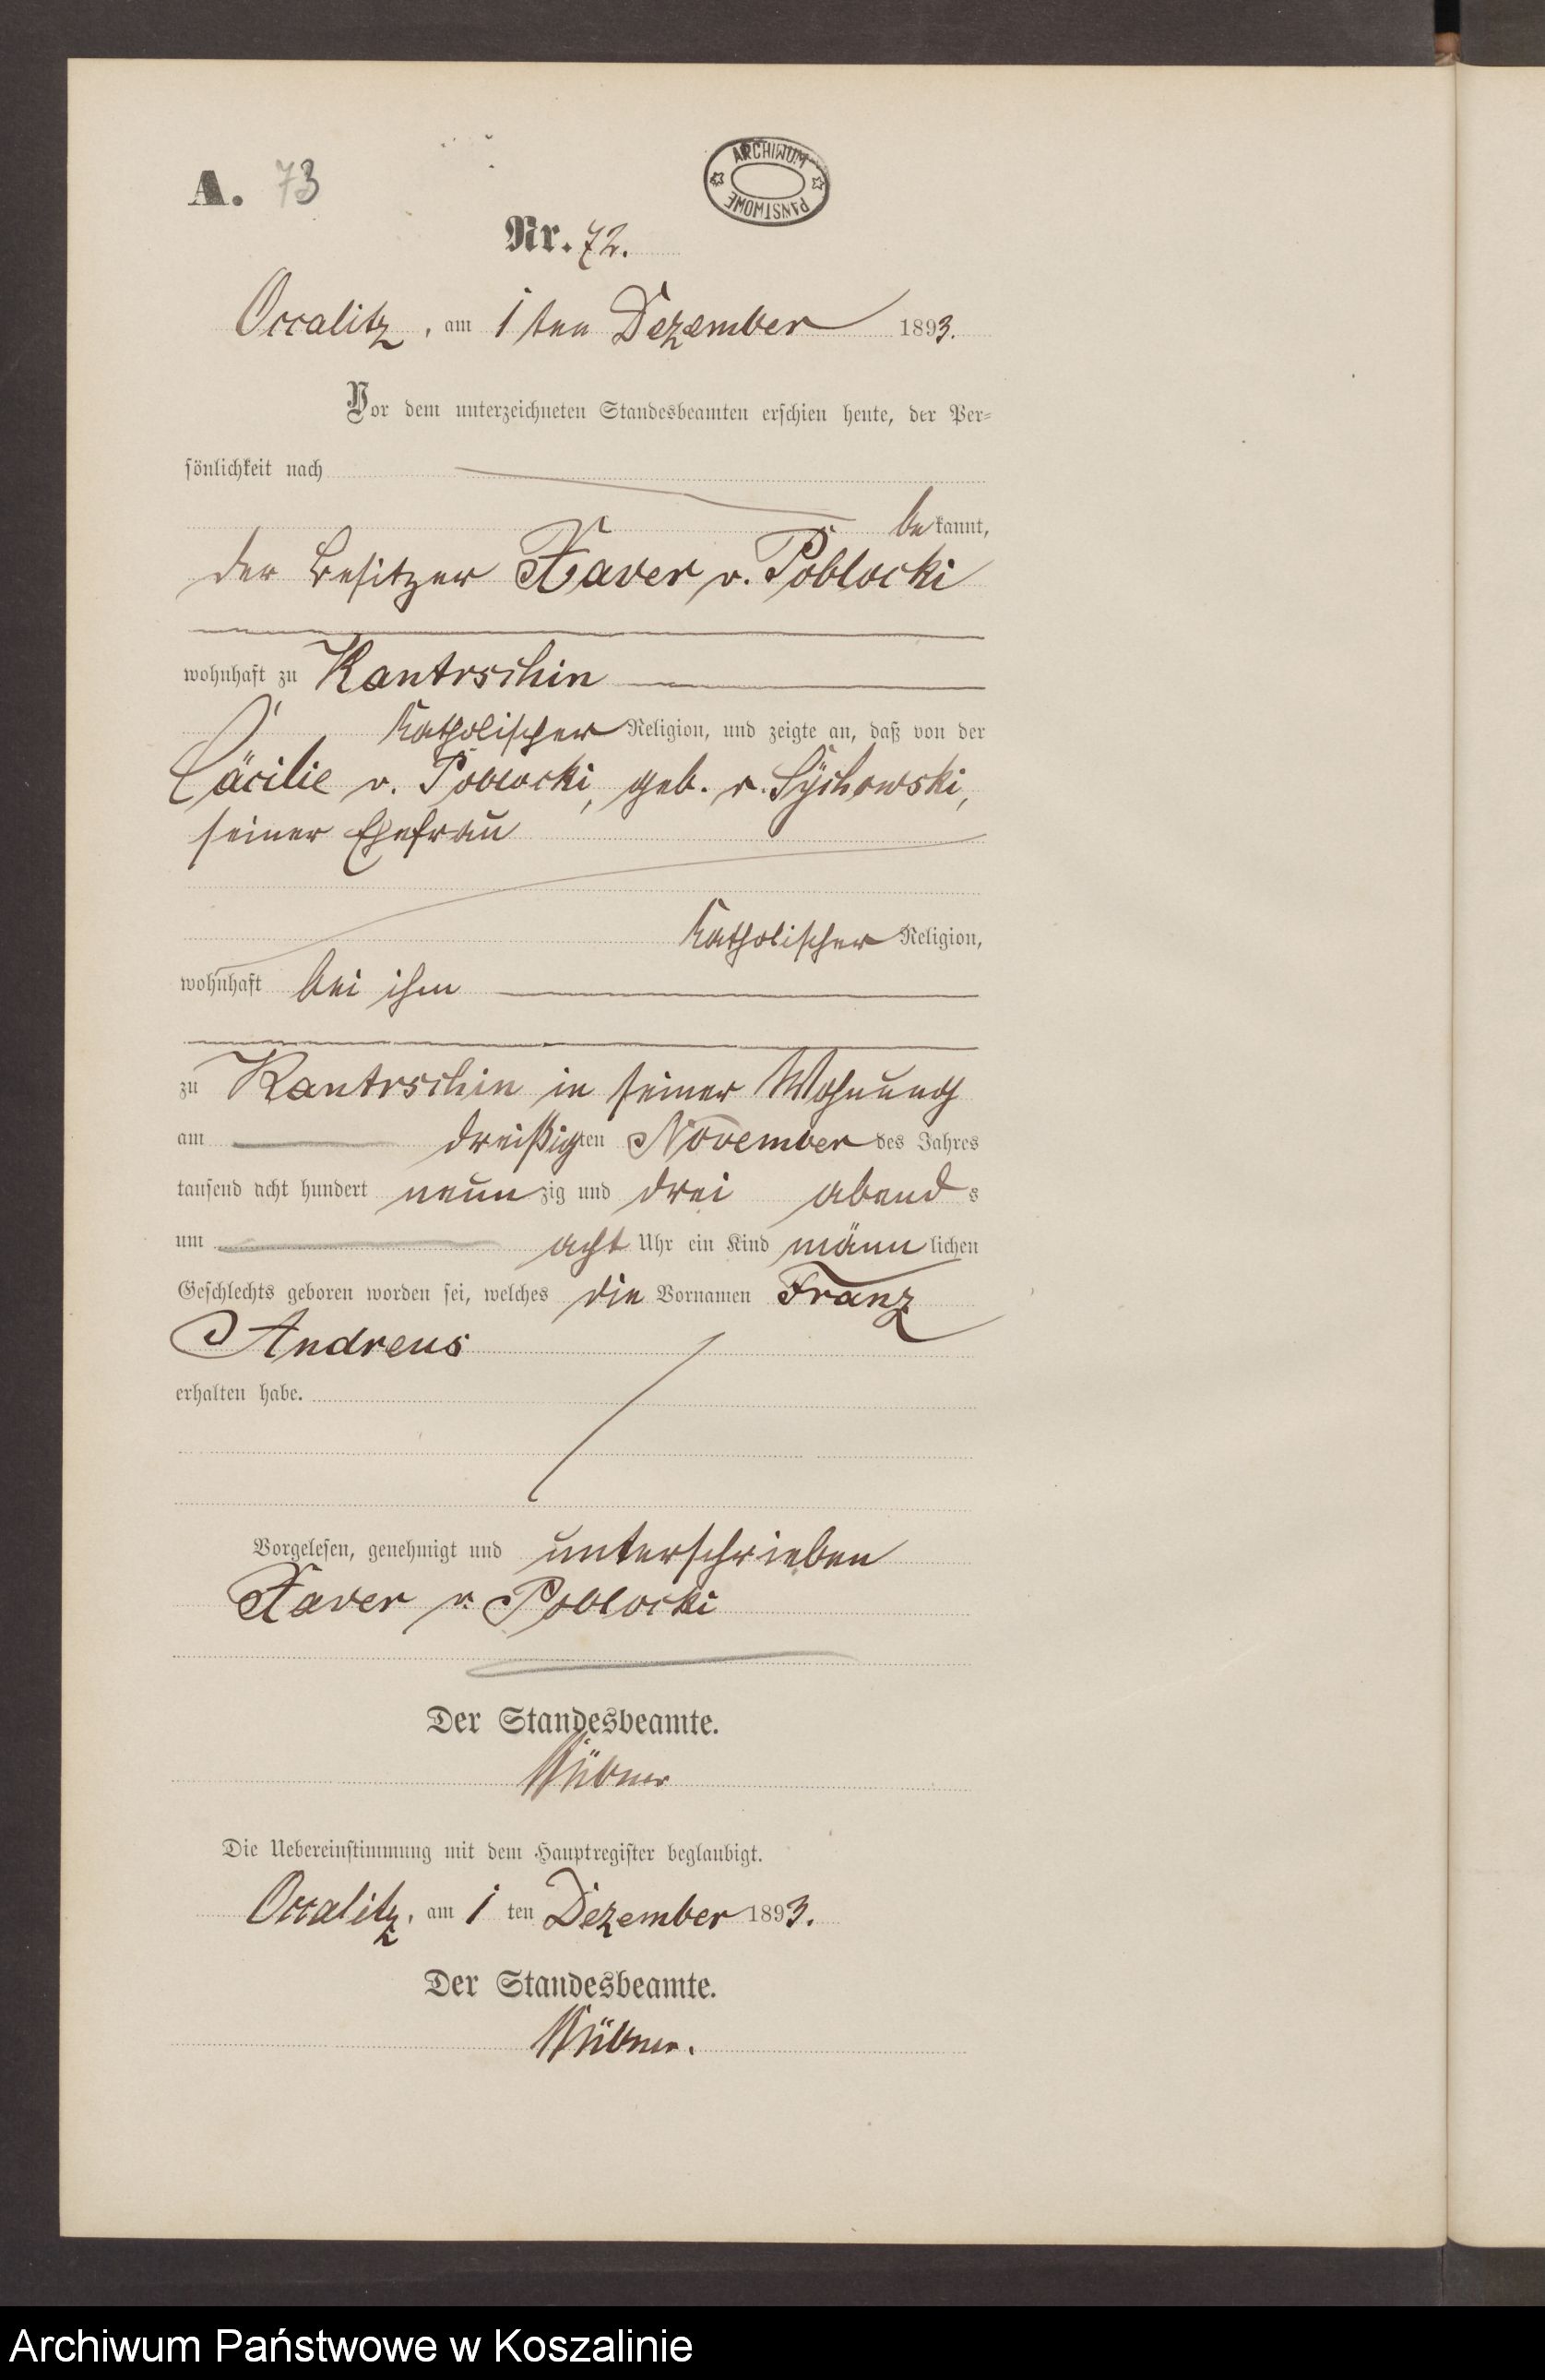 A. 73
ARCHIWUM PAŃSTWOWE
Nr. 72.
Occalitz, am 1 ten Dezember 1893.
Vor dem unterzeichneten Standesbeamten erschien heute, der Per-
sönlichkeit nach
bekannt,
der Besitzer Xaver v. Poblocki
wohnhaft zu Kantrschin
katholischer Religion, und zeigte an, daß von der
Cäcilie v. Poblocki, geb. v. Sÿchowski,
seiner Ehefrau
katholischer Religion,
wohnhaft bei ihm
zu Kantrschin in seiner Wohnung
am dreißigten November des Jahres
tausend acht hundert neunzig und drei abends
um acht Uhr ein Kind männlichen
Geschlechts geboren worden sei, welches die Vornamen Franz
Andreas
erhalten habe.
Vorgelesen, genehmigt und unterschrieben
Xaver v. Poblocki
Der Standesbeamte.
Die Uebereinstimmung mit dem Hauptregister beglaubigt.
Occalitz, am 1 ten Dezember 1893.
Der Standesbeamte.
Archiwum Państwowe w Koszalinie